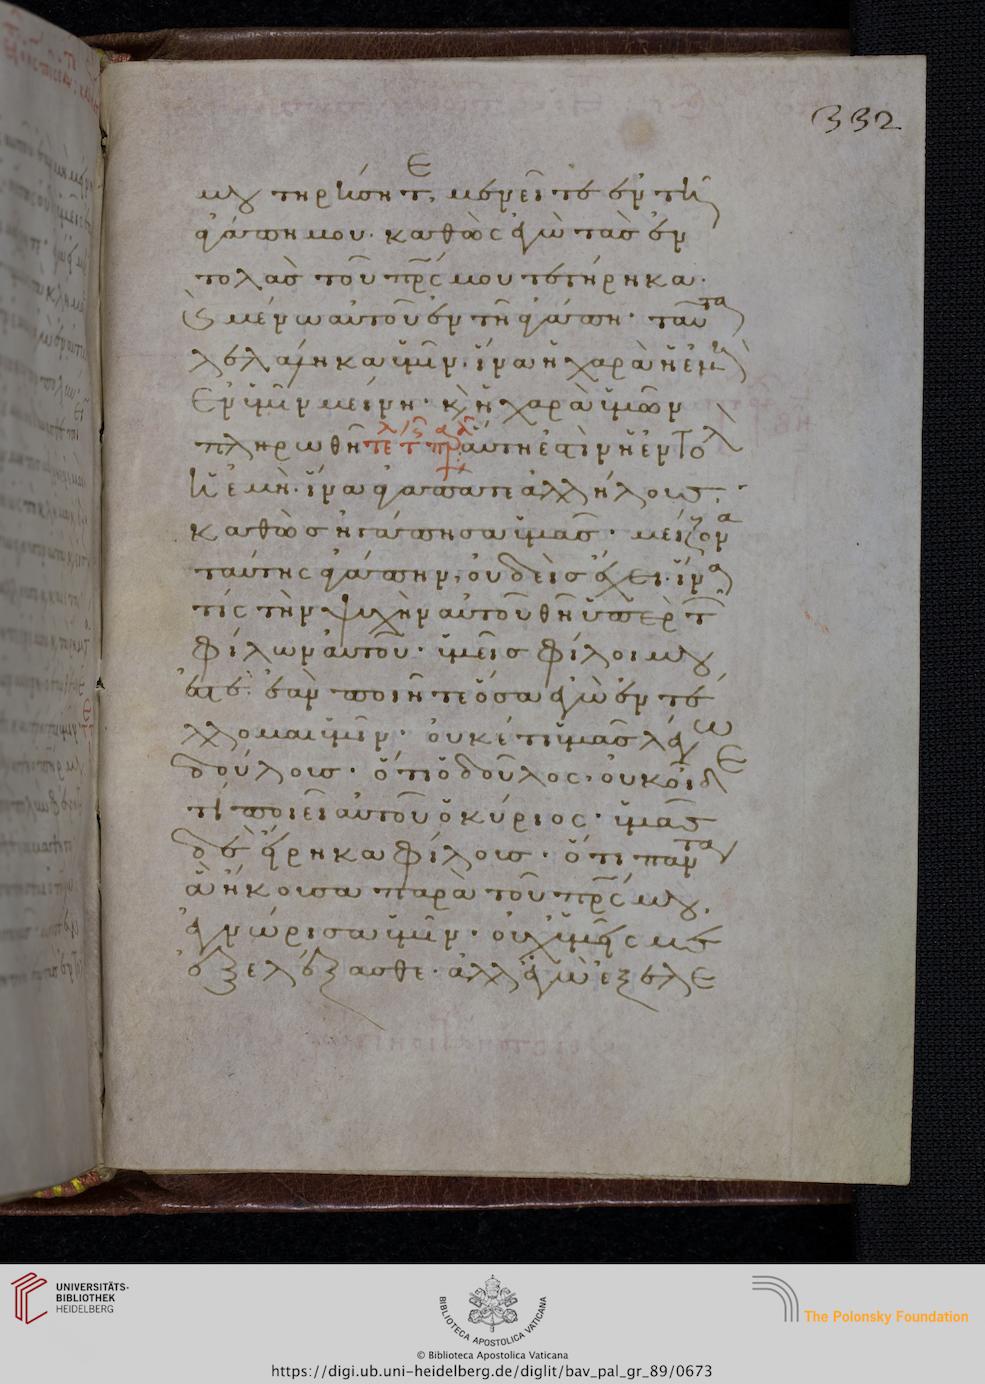 332
μου τηρήσητε, μενεῖτε ἐν τῆ ἀ
γάπη μου· καθὼς ἐγὼ τὰς ἐν
τολὰς τοῦ πρς μου τετήρηκα·
καὶ μένω αὐτοῦ ἐν τῆ ἀγάπη· ταῦτα
λελάληκα ὑμῖν· ἵνα ἡ χαρὰ ἡ ἐμὴ
ἐν ὑμῖν μείνη· καὶ ἡ χαρὰ ὑμῶν
πληρωθῆ αὕτη ἐστὶν ἡ ἐντολ
ὴ ἡ ἐμὴ· ἵνα ἀγαπᾶτε ἀλλήλους·
καθὼς ἠγάπησα ὑμᾶς· μείζονα
ταύτης ἀγάπην, οὐδεὶς ἔχει· ἵνα
τίς τὴν ψυχὴν αὐτοῦ θῆ ὑπὲρ τῶν
φίλων αὐτοῦ· ὑμεῖς φίλοι μου
ἐστέ· ἐὰν ποιῆτε ὅσα ἐγὼ ἐντέ
λλομαι ὑμῖν· οὐκέτι ὑμᾶς λέγω
δούλους· ὅτι ὁ δοῦλος οὐκ οἶδε
τί ποιεῖ αὐτοῦ ὁ κύριος· ὑμᾶς
δὲ εἴρηκα φίλους· ὅτι πάντα
ἃ ἤκουσα παρὰ τοῦ πρς μου,
ἐγνώρισα ὑμῖν· οὐχ ὑμεῖς με
ἐξελέξασθε· ἀλλ' ἐγὼ ἐξελε
UNIVERSITÄTS-
BIBLIOTHEK
HEIDELBERG
BIBLIOTECA APOSTOLICA VATICANA
The Polonsky Foundation
© Biblioteca Apostolica Vaticana
https://digi.ub.uni-heidelberg.de/diglit/bav_pal_gr_89/0673